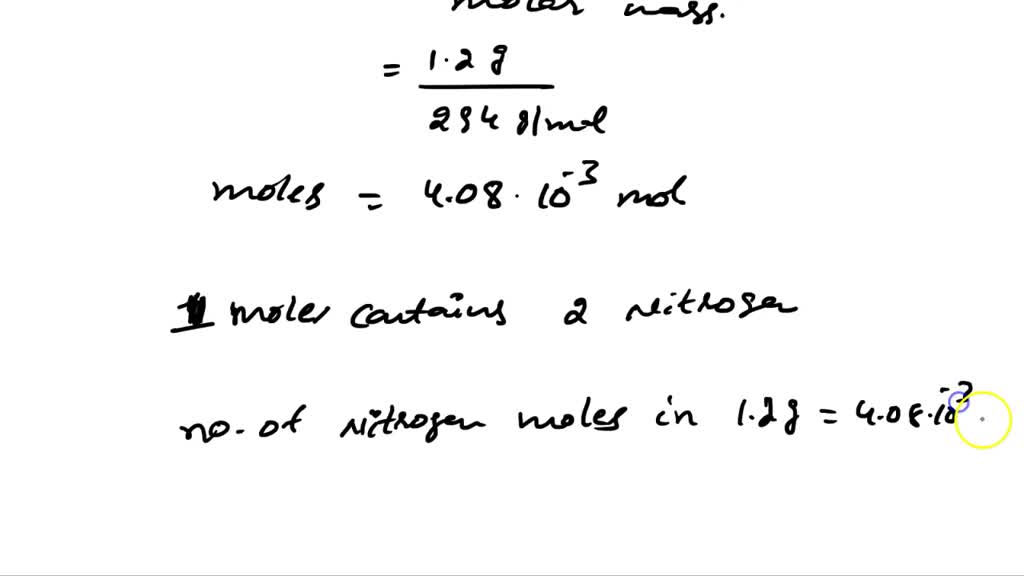 molar mass.
= 1.2 g
294 g/mol
moles = 4.08 · 10^-3 mol
1 moles contains 2 nitrogen
no. of nitrogen moles in 1.2g = 4.08·10^-3